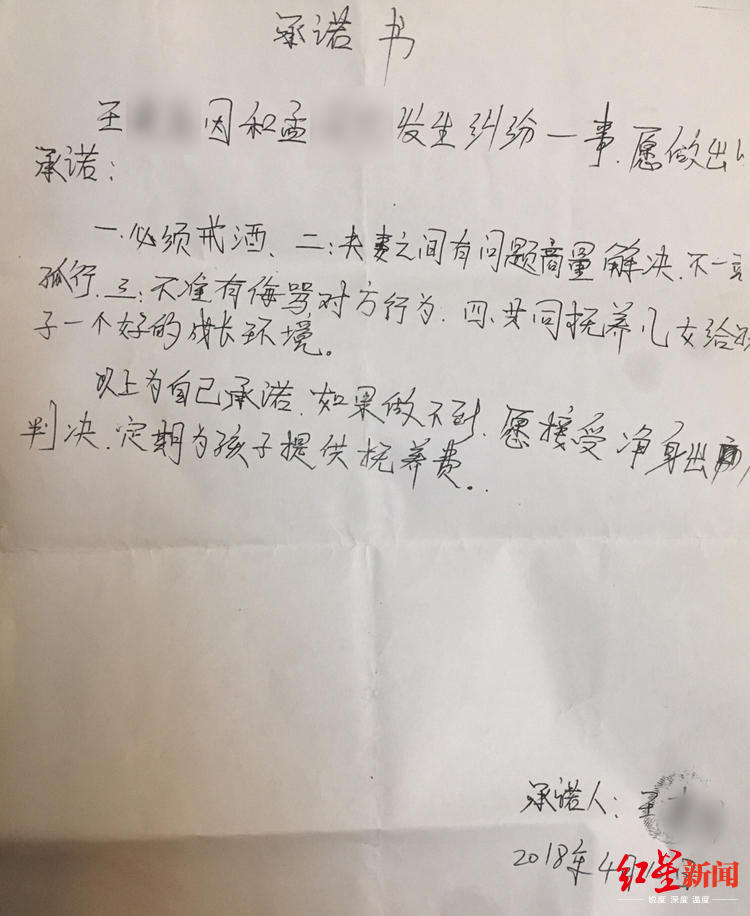 承诺书
王 因和孟 发生纠纷一事.愿做出
承诺：
一.必须戒酒、二：夫妻之间有问题商量解决.不一意
孤行.三：不准有侮骂对方行为.四.共同抚养儿女给孩
子一个好的成长环境。
以上为自己承诺.如果做不到.愿接受净身出户
判决.定期为孩子提供抚养费..
承诺人：王
2018年4月
红星新闻
锐度 深度 温度